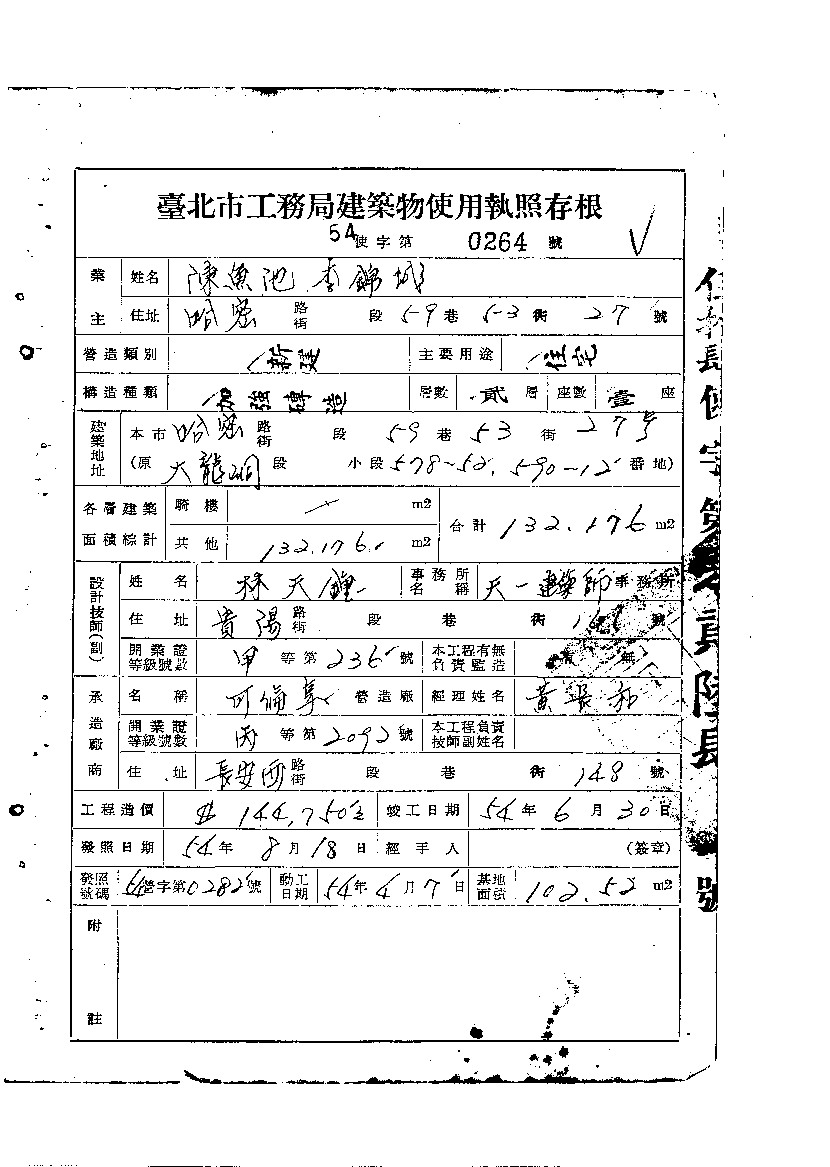 臺北市工務局建築物使用執照存根
54使字第 0264 號
業主 姓名 陳魚池 李錦城
住址 哈密 路街 段 59 巷 53 衖 27 號
營造類別 新建 主要用途 住宅
構造種類 加強磚造 層數 貳 層 座數 壹 座
建築地址 本市 哈密 路街 段 59 巷 53 衖 27号
(原 大龍峒 段 小段 578-52, 590-12 番地)
各層建築面積綜計 騎樓 m2 合計 132.176 m2
其他 132.176 m2
設計技師(副) 姓名 林天鐘 事務所名稱 天一建築師事務所
住址 貴陽 路街 段 巷 衖 號
開業證等級號數 甲 等第 236 號 本工程有無負責監造 有 無
承造廠商 名稱 營造廠 經理姓名 黃
開業證等級號數 丙 等第 2092 號 本工程負責技師副姓名
住址 長安西 路街 段 巷 衖 148 號
工程造價 $ 144,750 竣工日期 54 年 6 月 30 日
發照日期 54 年 8 月 18 日 經手人 (簽章)
發照號碼 54營字第0282號 動工日期 54年4月7日 基地面積 102.52 m2
附註